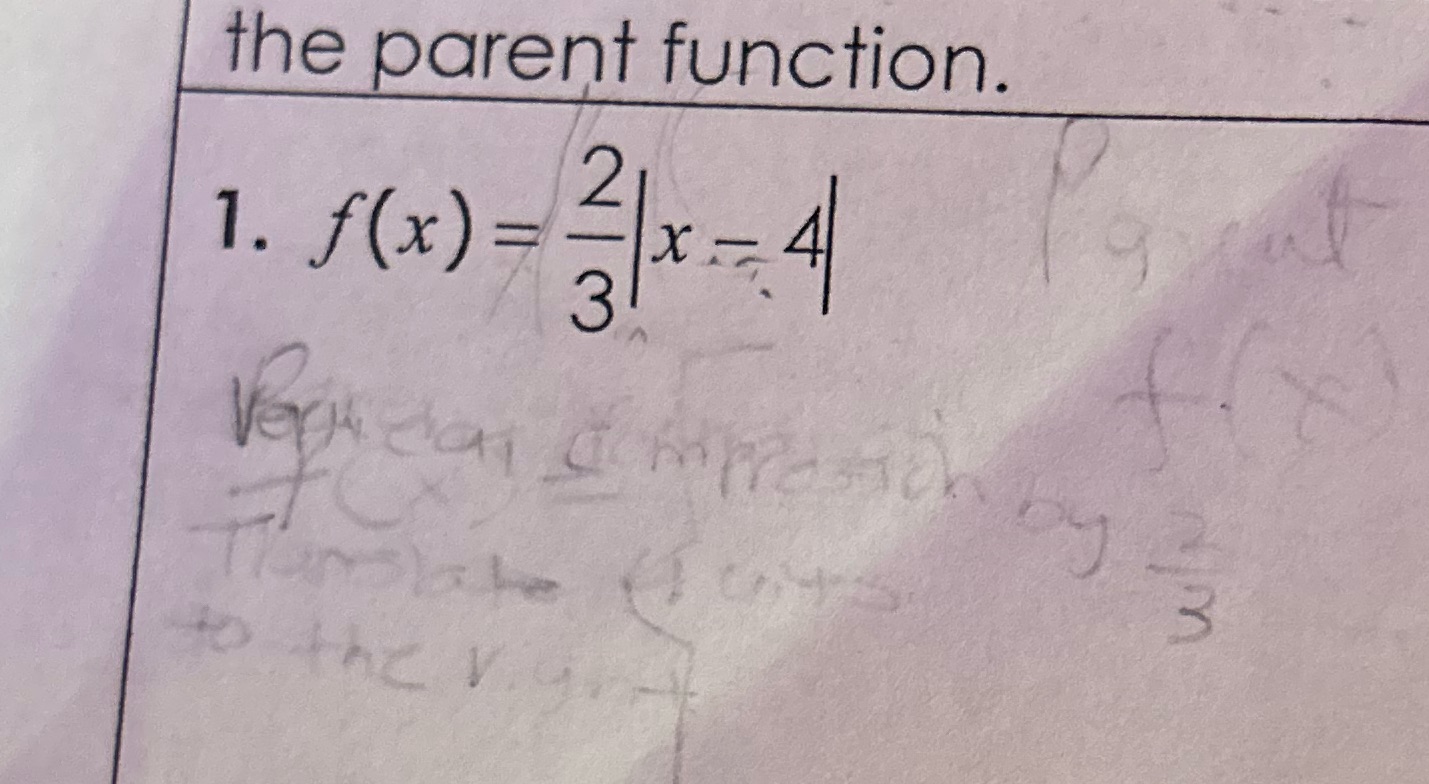 the parent function.
1. f(x) = 2/3|x - 4|
Parent
f(x)
Vertical compression by 2/3
f(x)
Translate 4 units
to the right